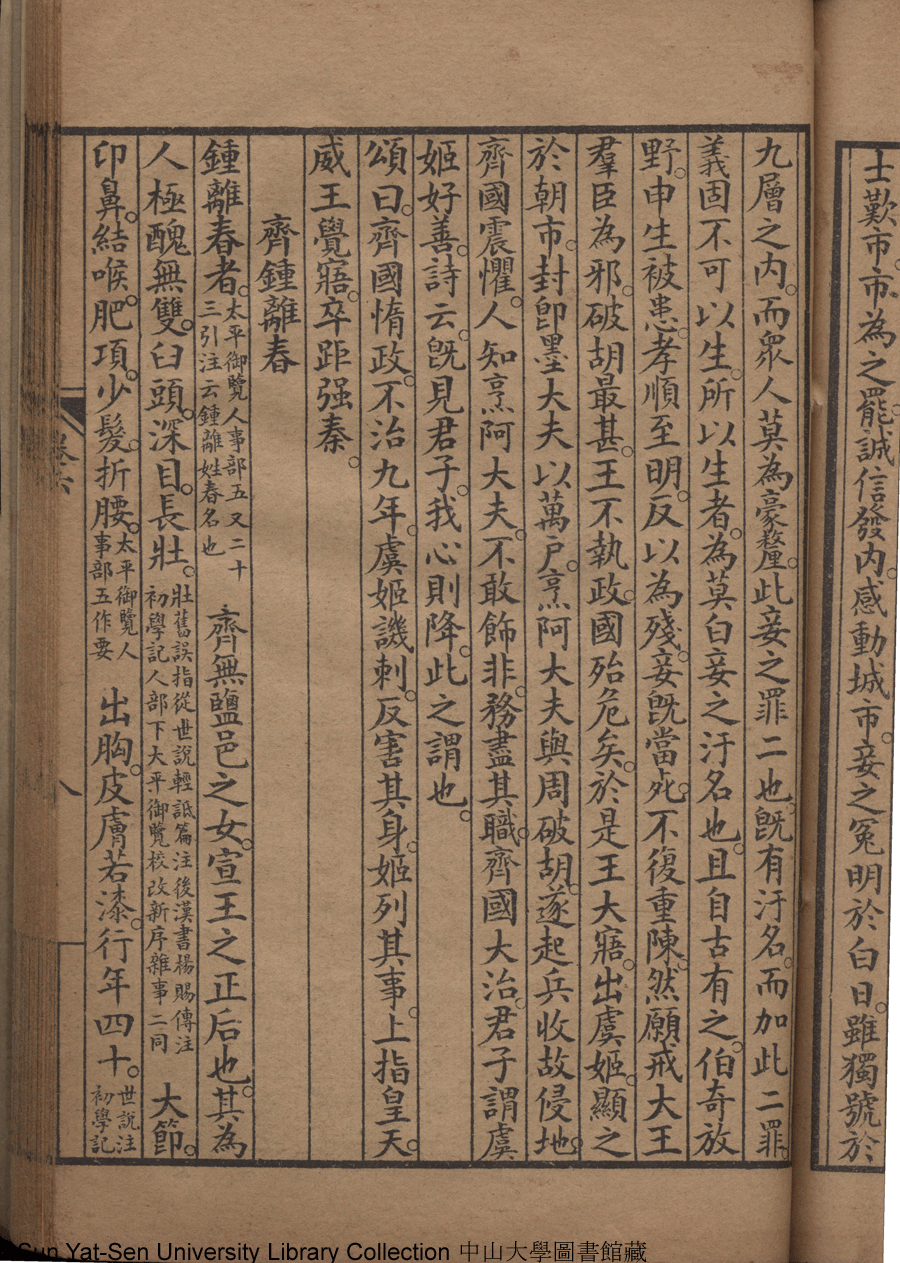 士歎市市為之罷誠信發內感動城市妾之冤明於白日雖獨號於
九層之内而眾人莫為豪釐此妾之罪二也既有汙名而加此二罪
義固不可以生所以生者為莫白妾之汙名也且自古有之伯奇放
野申生被患孝順至明反以為殘妾既當死不復重陳然願戒大王
羣臣為邪破胡最甚王不執政國殆危矣於是王大寤出虞姬顯之
於朝市封卽墨大夫以萬户烹阿大夫與周破胡遂起兵收故侵地
齊國震懼人知烹阿大夫不敢飾非務盡其職齊國大治君子謂虞
姬好善詩云既見君子我心則降此之謂也
頌曰齊國惰政不治九年虞姬譏刺反害其身姬列其事上指皇天
威王覺寤卒距强秦
齊鍾離春
鍾離春者太平御覽人事部五又二十三引注云鍾離姓春名也齊無鹽邑之女宣王之正后也其為
人極醜無雙臼頭深目長壯壯舊誤指從世說輕詆篇注後漢書楊賜傳注初學記人部下大平御覽校改新序雜事二同大節
卬鼻結喉肥項少髮折腰太平御覽人事部五作要出胸皮膚若漆行年四十世說注初學記
卷六
八
Sun Yat-Sen University Library Collection 中山大學圖書館藏